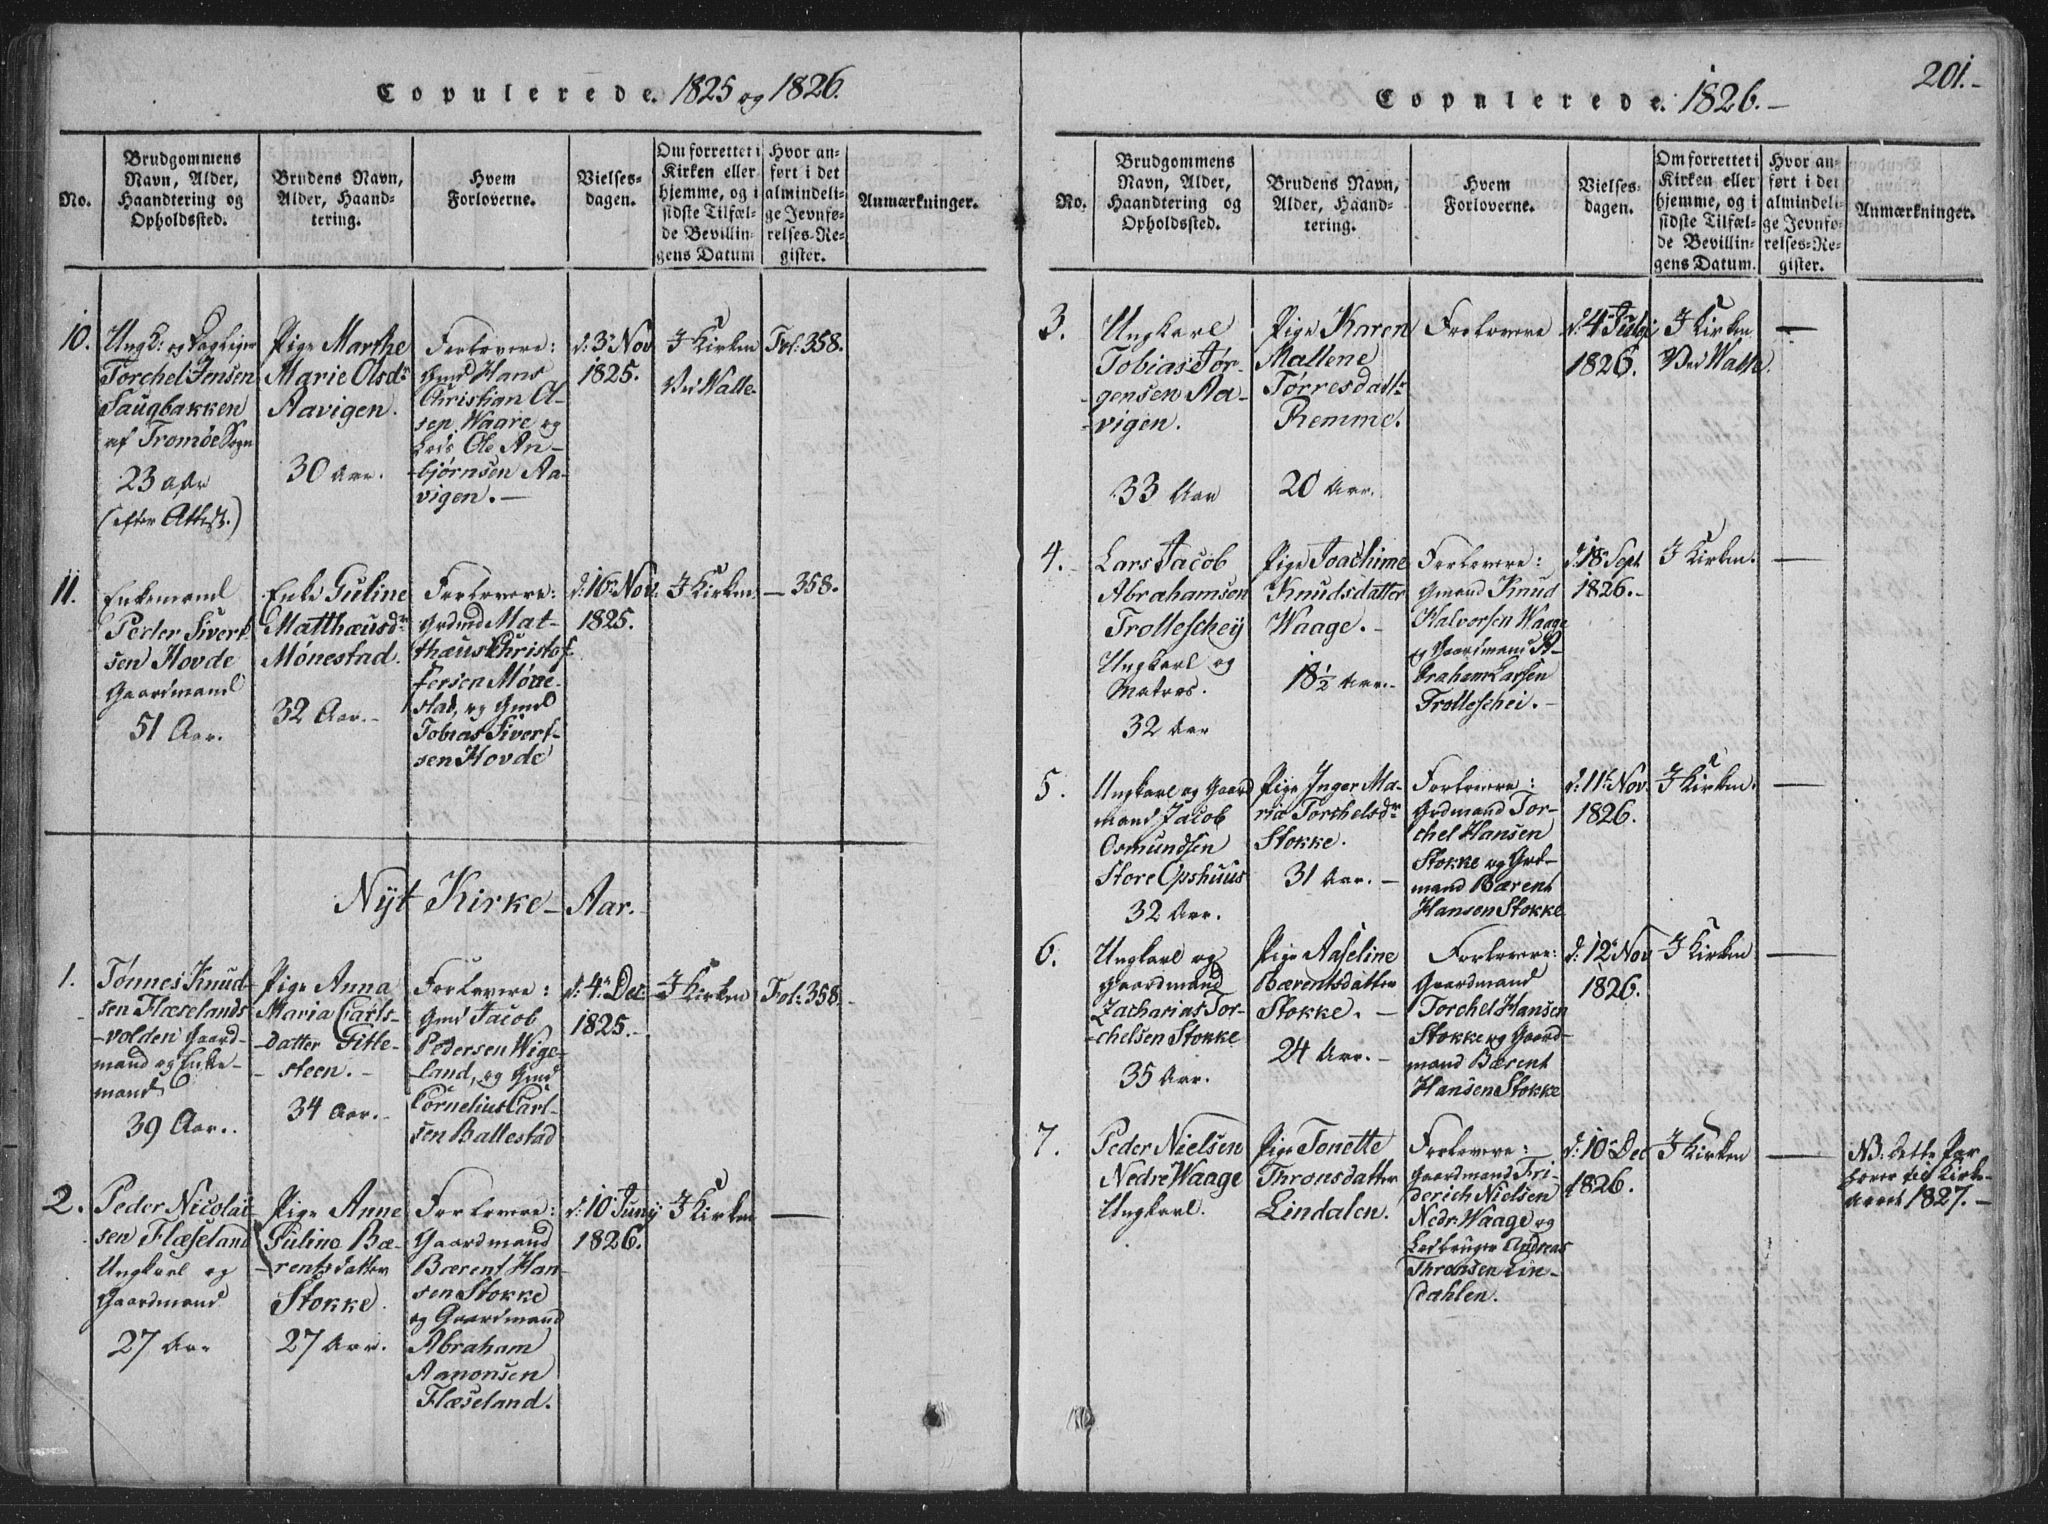 Copulerede. 1825 og 1826.
No.
Brudgommens
Navn, Alder,
Haandtering og
Opholdssted.
Brudens Navn,
Alder, Haand-
tering.
Hvem
Forloverne.
Vielses-
dagen.
Om forrettet i
Kirken eller
hjemme, og i
sidste Tilfæl-
de Bevillin-
gens Datum
Hvor an-
ført i det
almindeli-
ge Jevnfø-
relses-Re-
gister.
Anmærkninger.
10.
Ungk: og
Torchel Jensen
Saugbakken
af Tromøe Sogn
23 aar
(efter Attest.)
Pige Marthe
Marie Olsdr
Aavigen.
30 Aar.
Forlovere:
Gmd Hans
Christian O-
sen Waare og
Leds Ole An-
-bjørnsen Aa-
vigen.-
d: 3 Nov
1825.
I Kirken
Ved Valle.
Fol: 358.
11.
Enkemand
Peder Sivert-
sen Hovde
Gaardmand
51 Aar.
Enke Guline
Matthæusdr
Mønestad.
32 Aar.-
Forlovere:
Grdmd Mat-
thæus Christof-
fersen Møne-
stad, og Gmd
Tobias Sivert-
sen Hovde
d: 16 Nov.
1825.
I Kirken
- 358.
Nyt Kirke-Aar.
1.
Tønnes Knud-
sen Flæselands-
-volden Gaard-
mand og Enke-
mand
39 Aar.
Pige Anna
Maria Carls-
-datter Gitle-
-steen.-
34 Aar.-
Forlovere:
Gmd Jacob
Pedersen Wige-
-land, og Gmd
Cornelius Carl-
sen Ballestad
d: 4 Dec
1825.
I Kirken
Fol: 358.
2.
Peder Nicolai-
sen Flæseland
Ungkarl og
Gaardmand
27 Aar
Pige Anne
Gulino Bæ-
-rentsdatter
Stokke.
27 Aar.
Forlovere:
Gaardmand
Bærent Han-
sen Stokke
og Gaardmand
Abraham
Aanonsen
Flæseland.
d: 10 Juny
1826.
I Kirken
-
Copulerede. 1826.-
201.-
No.
Brudgommens
Navn, Alder,
Haandtering og
Opholdssted.
Brudens Navn,
Alder, Haand-
tering.
Hvem
Forloverne.
Vielses-
dagen.
Om forrettet i
Kirken eller
hjemme, og i
sidste Tilfæl-
de Bevillin-
gens Datum.
Hvor an-
ført i det
almindeli-
ge Jevnfø-
relses-Re-
gister.
Anmærkninger.
3.
Ungkarl
Tobias Jør-
gensen Aa-
-vigen.
33 Aar
Pige Karen
Mallene
Tørresdattr
Remme.
20 Aar.
Forlovere
d: 4 July
1826.
I Kirken
Ved Valle.
-
4.
Lars Jacob
Abrahamsen
Trolleschey
Ungkarl og
Matros.
32 Aar
Pige Joachime
Knudsdatter
Waage.-
18½ Aar.-
Forlovere:
Gmand Knud
Halvorsen Waage
og Gaardmand A-
braham Larsen
Trolleschei.-
d: 18 Sept
1826.-
I Kirken.
-
5.
Ungkarl og Gaard
mand Jacob
Osmundsen
Store Opshuus
32 Aar.
Pige Inger Ma-
ria Torchelsdr
Stokke.
31 Aar.-
Forlovere:
Grdmand Tor-
chel Hansen
Stokke og Grd-
mand Bærent
Hansen Stokke
d: 11 Nov.
1826.
I Kirken.
-
6.
Ungkarl og
Gaardmand
Zacharias Tor-
-chelsen Stokke
35 Aar.
Pige Aaseline
Bærentsdatter
Stokke.-
24 Aar.-
Forlovere:
Gaardmand
Torchel Hansen
Stokke og Gaard-
mand Bærent
Hansen Stokke
d: 12 Nov
1826.
I Kirken
-
7.
Peder Nielsen
Nedre Waage
Ungkarl.
Pige Tonette
Thronsdatter
Lindalen.
Forlovere:
Gaardmand Fri-
derich Nielsen
Nedr: Waage og
Ledbruger Andreas
Thronsen Lin-
dahlen.
d: 10 Dec
1826.
I Kirken
-
NB. dette Par
hører til Kirke-
Aaret 1827.-